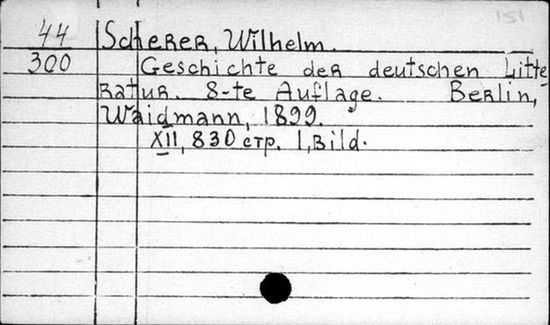 151
44 Scherer, Wilhelm.
300 Geschichte der deutschen Litte
ratur. 8-te Auflage. Berlin,
Waidmann, 1899.
XII, 830 стр. 1, Bild.